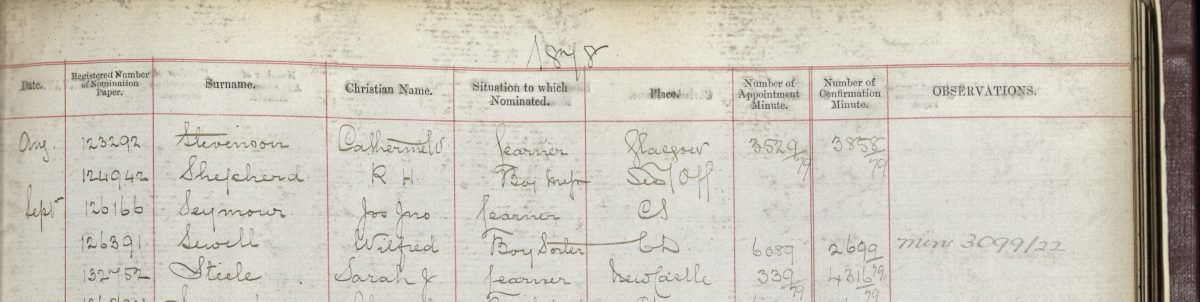 1878
Date. Registered Number of Nomination Paper. Surname. Christian Name. Situation to which Nominated. Place. Number of Appointment Minute. Number of Confirmation Minute. OBSERVATIONS.
Aug. 123292 Stevenson Catherine W Learner Glasgow 3529/79 3858/79
124942 Shepherd R H Boy Off
Sept 126166 Seymour Jos Jno Learner CS
126391 Sewell Wilfred Boy Sorter 6089 2699 Min 3099/22
Steele Sarah J Learner Newcastle 339/79 4316/79